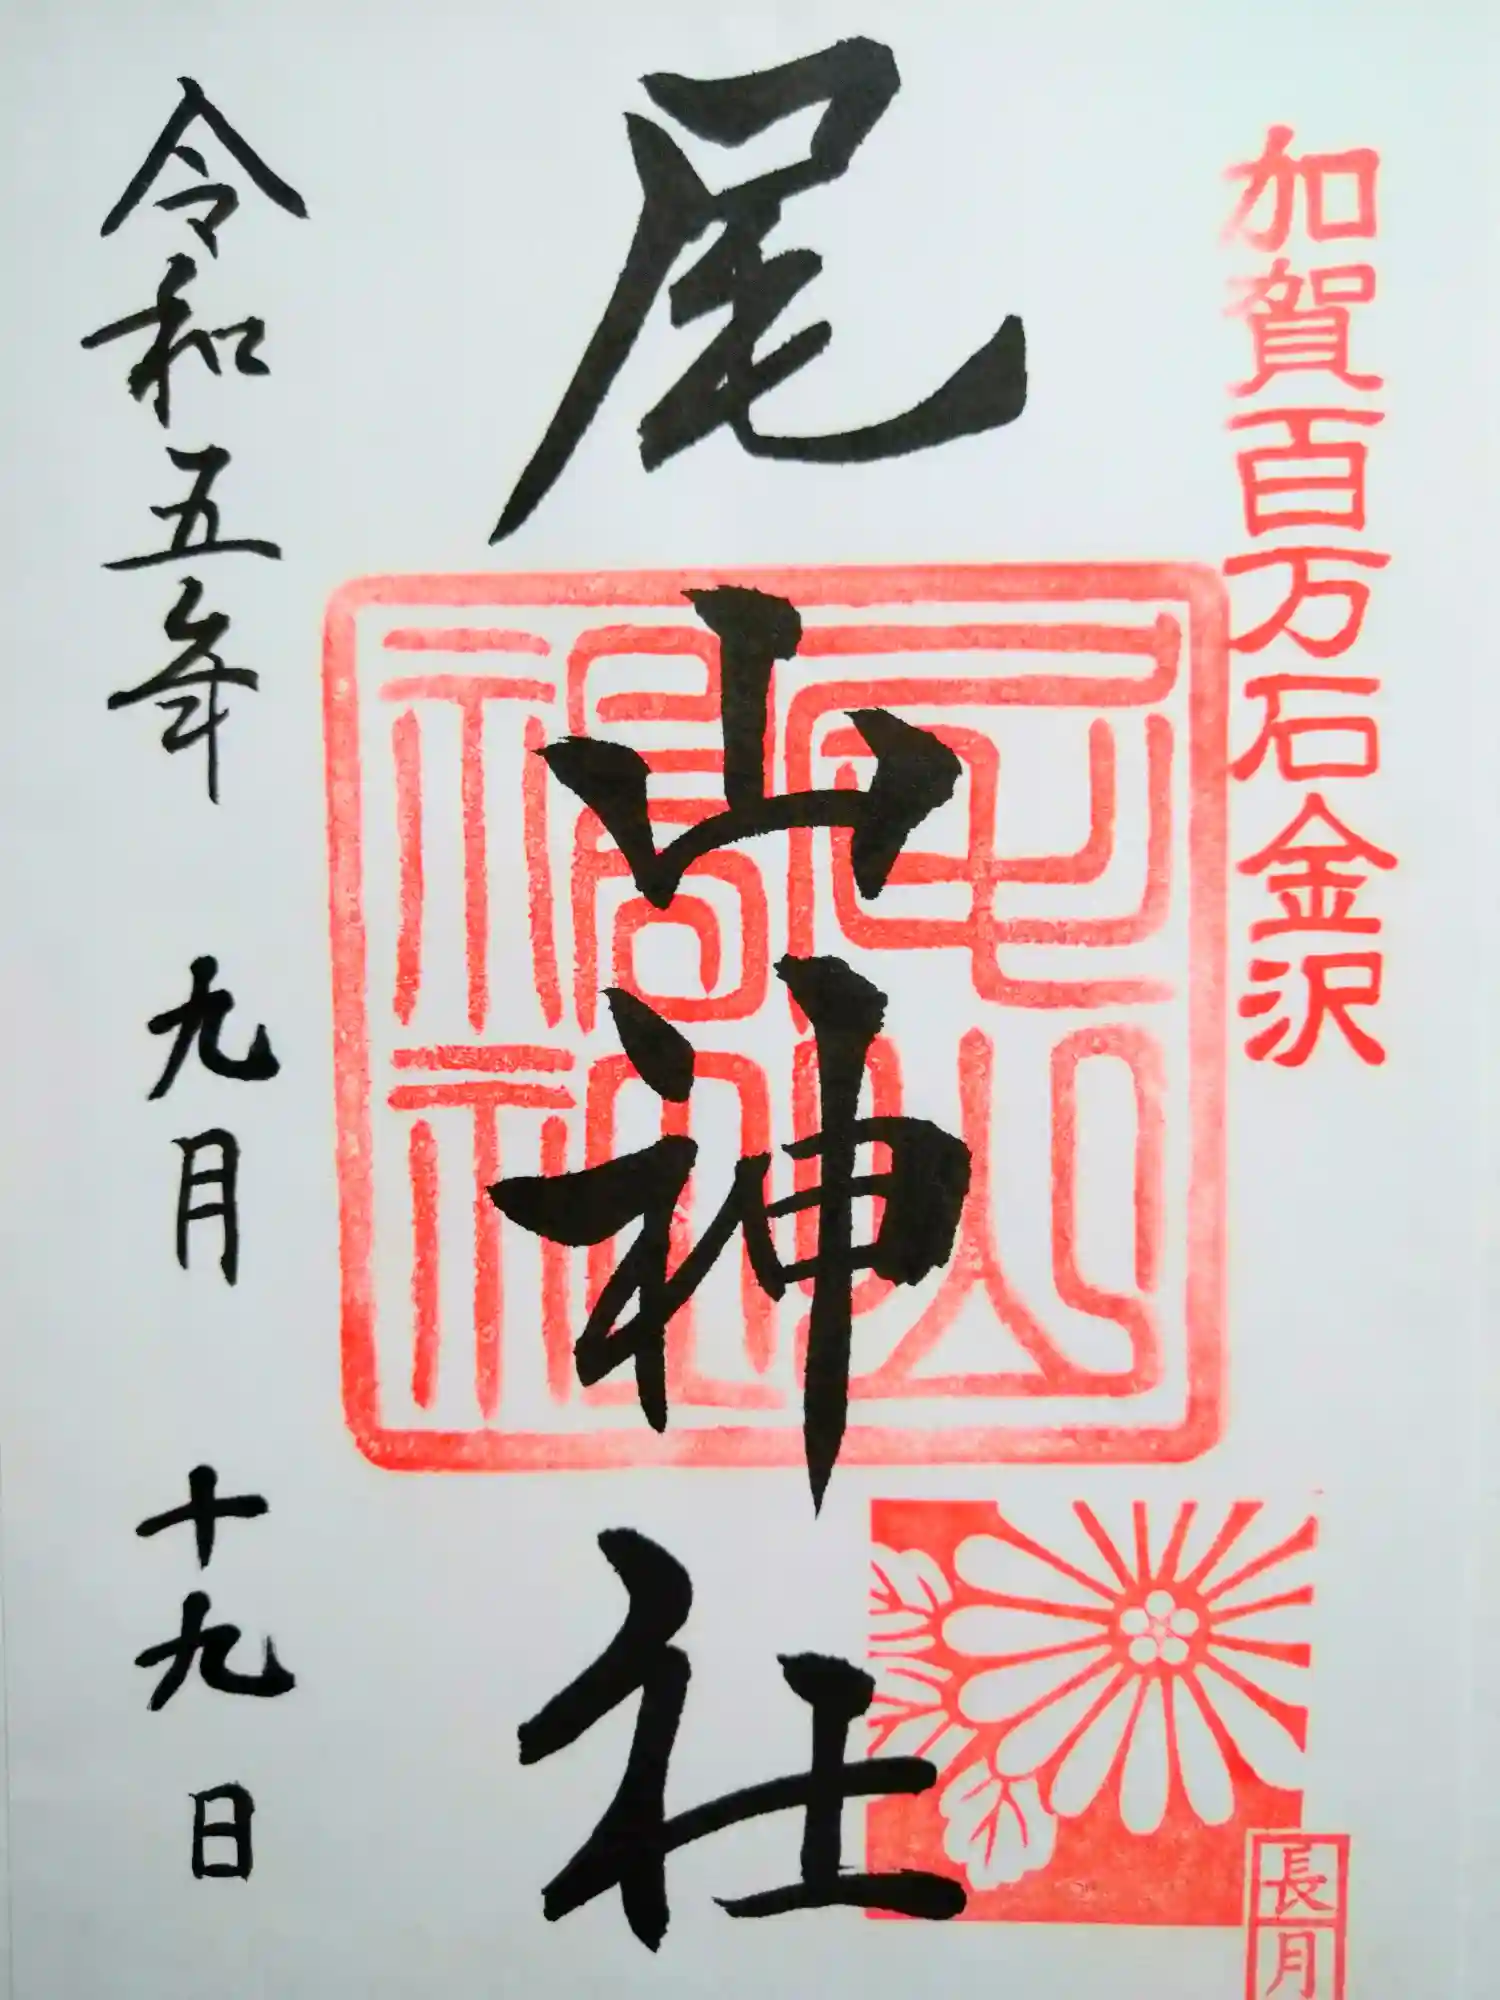 加賀百万石金沢
尾山神社
尾山神社
長月
令和五年 九月 十九日